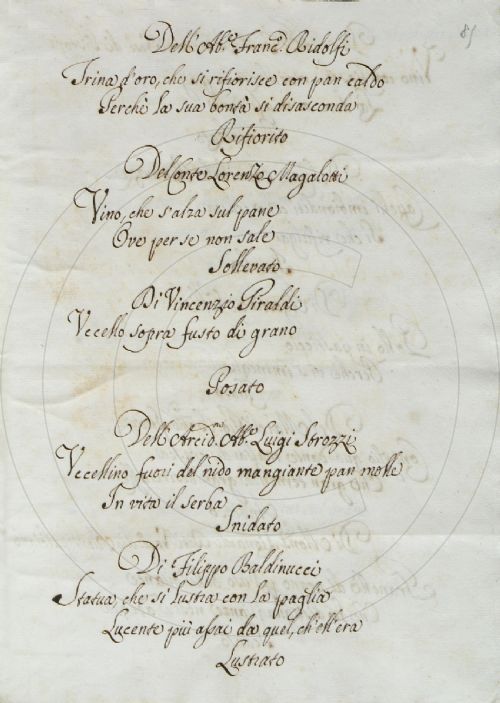 85
Dell'Ab.e Franc.o Ridolfi
Trina d'oro, che si rifiorisce con pan caldo
Perchè la sua bontà si disasconda
Rifiorito
Del Conte Lorenzo Magalotti
Vino, che s'alza sul pane
Ove per se non sale
Sollevato
Di Vincenzio Piraldi
Vccello sopra fusto di grano
Posato
Dell'Arcid.no Ab.e Luigi Strozzi
Vccellino fuori del nido mangiante pan molle
In vita il serba
Snidato
Di Filippo Baldinucci
Statua che si lustra con la paglia
Lucente più assai da quel, ch'ell'era
Lustrato